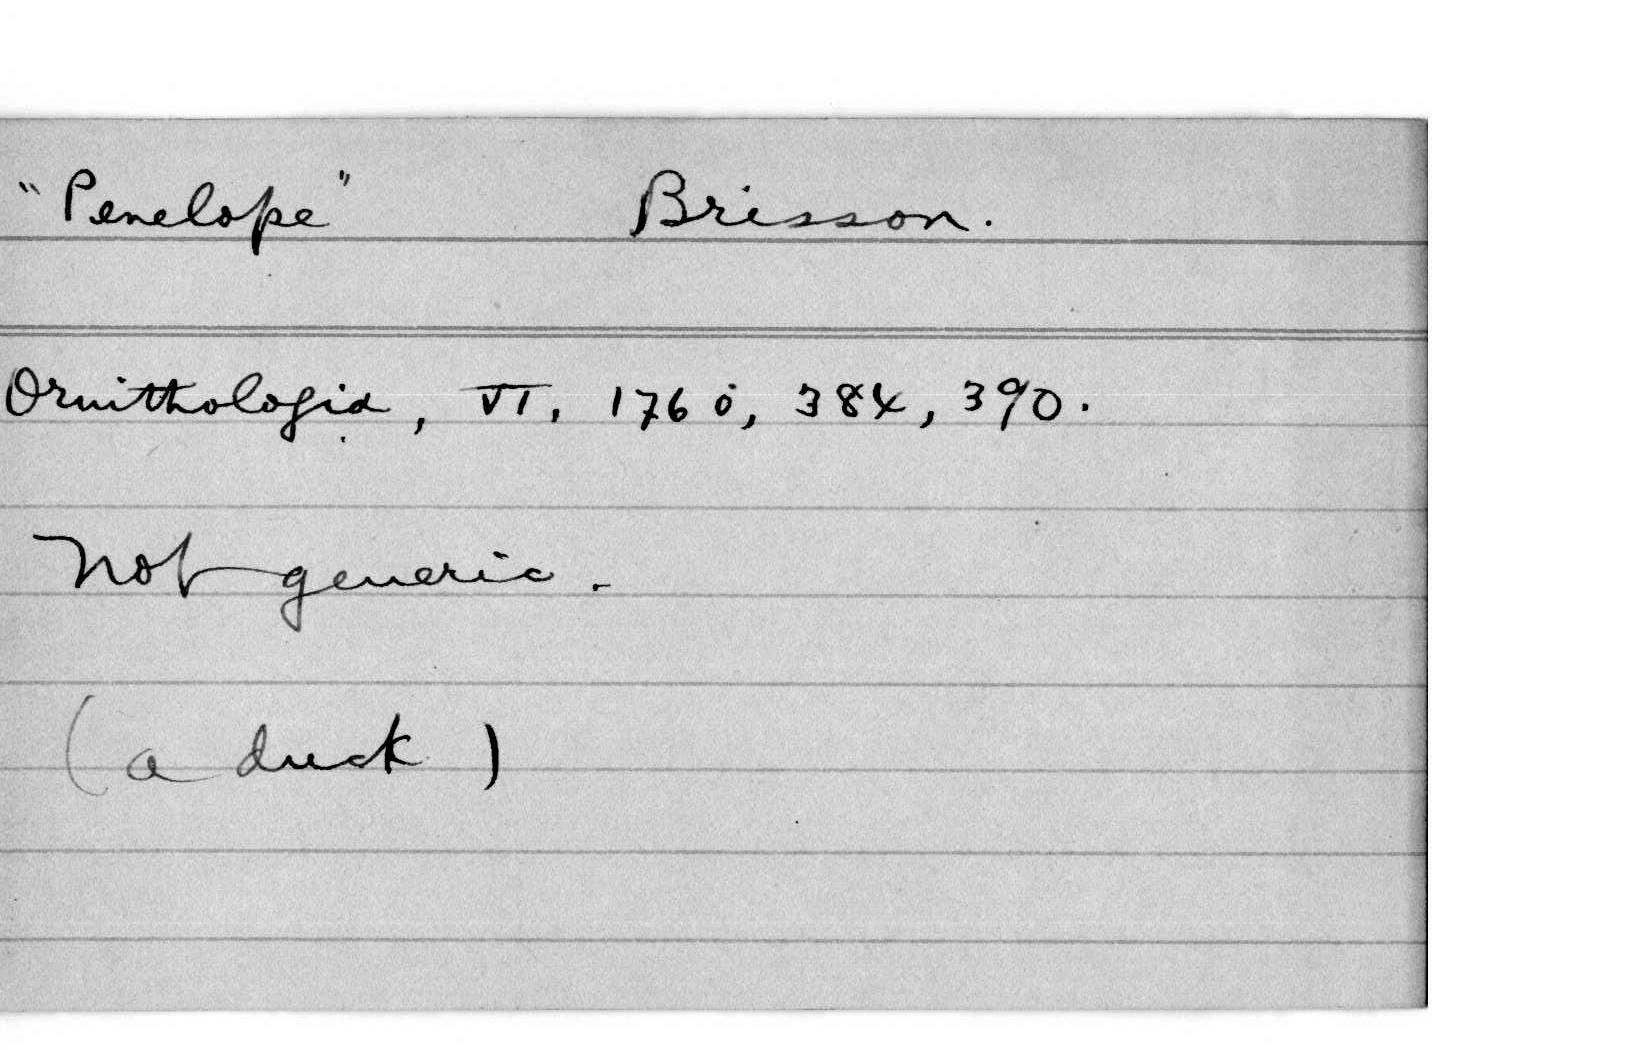 "Penelope" Brisson.
Ornithologia, VI, 1760, 384, 390.
Not generic.
(a duck)